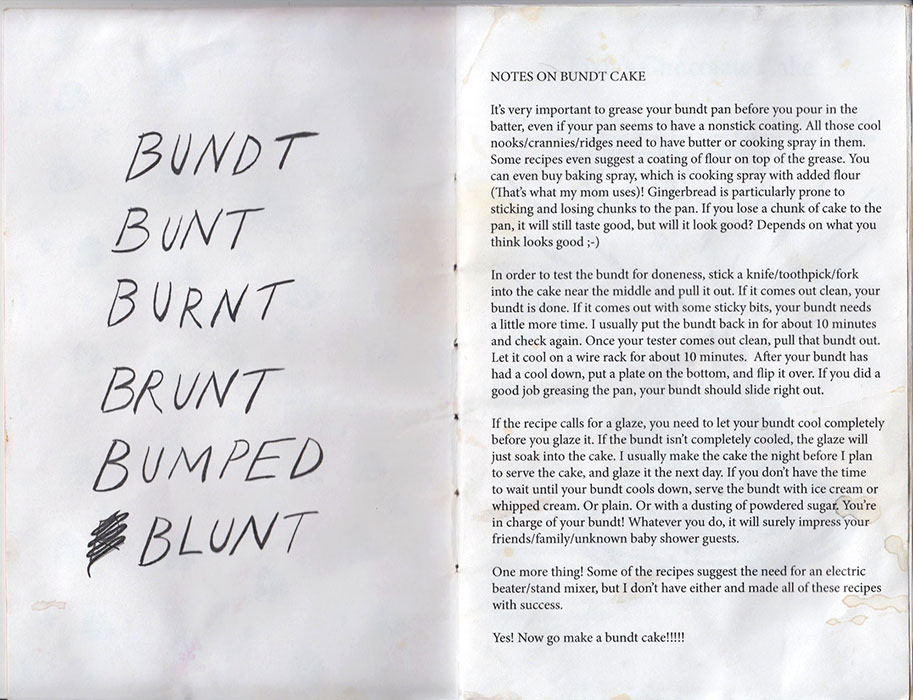 BUNDT
BUNT
BURNT
BRUNT
BUMPED
BLUNT
NOTES ON BUNDT CAKE
It's very important to grease your bundt pan before you pour in the
batter, even if your pan seems to have a nonstick coating. All those cool
nooks/crannies/ridges need to have butter or cooking spray in them.
Some recipes even suggest a coating of flour on top of the grease. You
can even buy baking spray, which is cooking spray with added flour
(That's what my mom uses)! Gingerbread is particularly prone to
sticking and losing chunks to the pan. If you lose a chunk of cake to the
pan, it will still taste good, but will it look good? Depends on what you
think looks good ;-)
In order to test the bundt for doneness, stick a knife/toothpick/fork
into the cake near the middle and pull it out. If it comes out clean, your
bundt is done. If it comes out with some sticky bits, your bundt needs
a little more time. I usually put the bundt back in for about 10 minutes
and check again. Once your tester comes out clean, pull that bundt out.
Let it cool on a wire rack for about 10 minutes.  After your bundt has
had a cool down, put a plate on the bottom, and flip it over. If you did a
good job greasing the pan, your bundt should slide right out.
If the recipe calls for a glaze, you need to let your bundt cool completely
before you glaze it. If the bundt isn't completely cooled, the glaze will
just soak into the cake. I usually make the cake the night before I plan
to serve the cake, and glaze it the next day. If you don't have the time
to wait until your bundt cools down, serve the bundt with ice cream or
whipped cream. Or plain. Or with a dusting of powdered sugar. You're
in charge of your bundt! Whatever you do, it will surely impress your
friends/family/unknown baby shower guests.
One more thing! Some of the recipes suggest the need for an electric
beater/stand mixer, but I don't have either and made all of these recipes
with success.
Yes! Now go make a bundt cake!!!!!